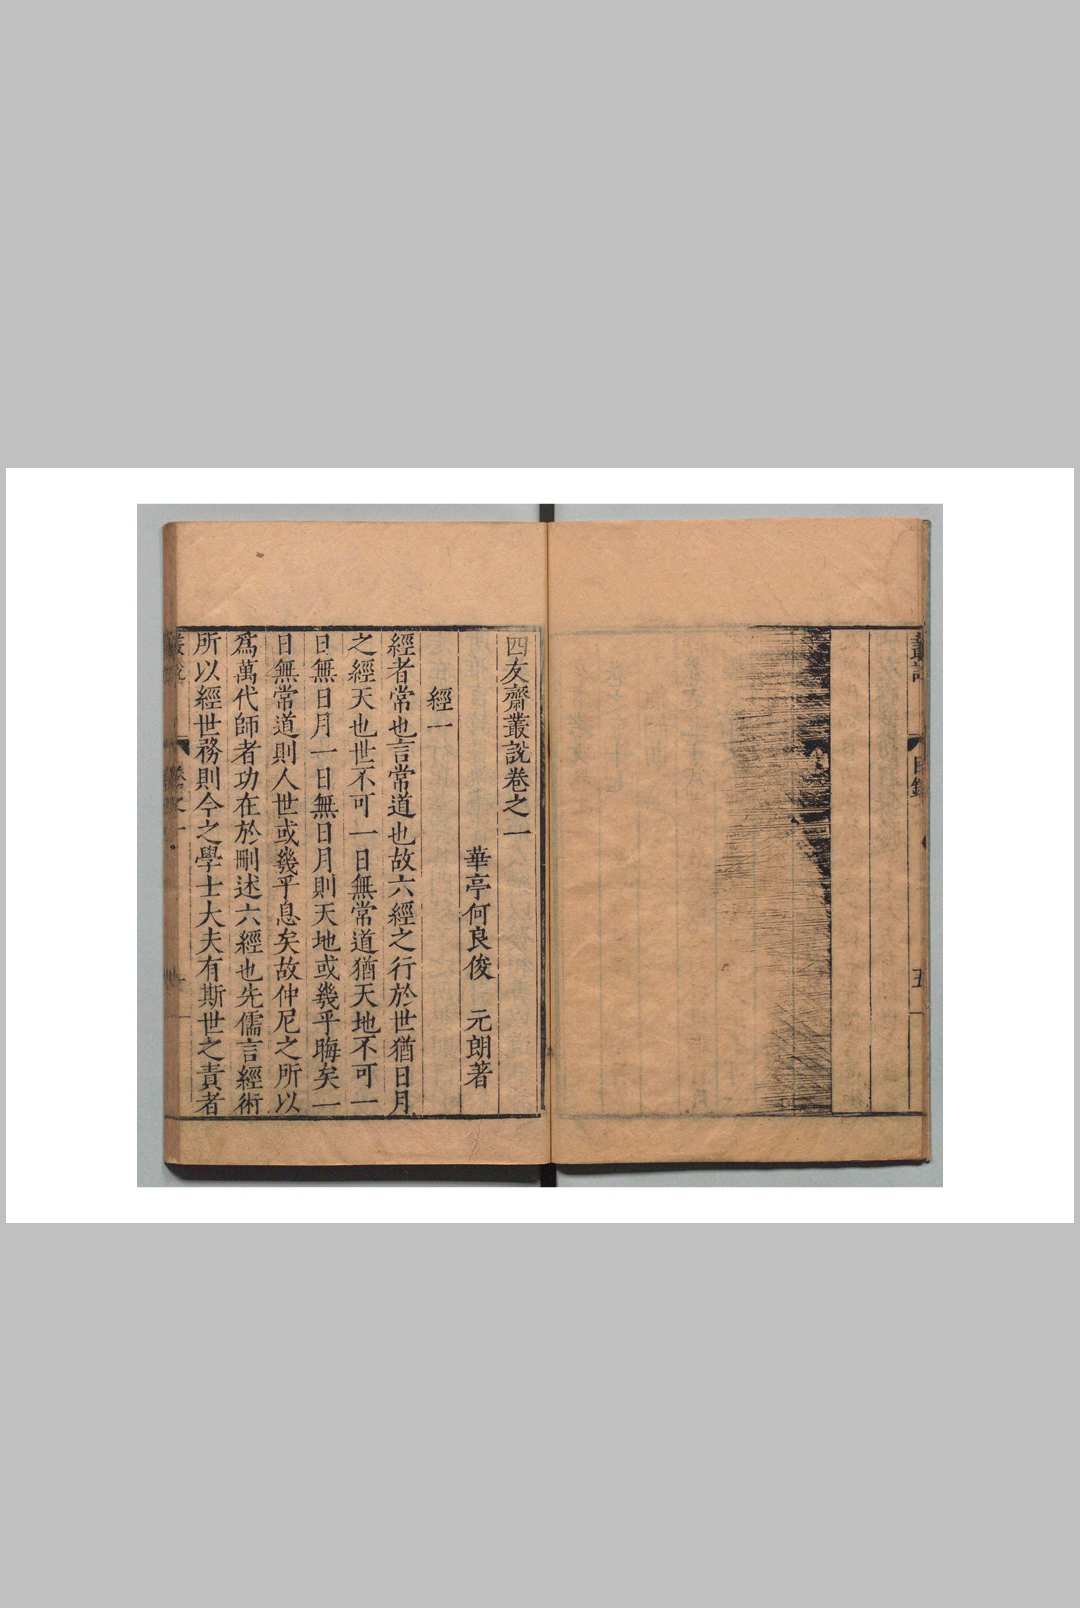 目錄
五
四友齋叢說卷之一
華亭何良俊 元朗著
經一
經者常也言常道也故六經之行於世猶日月
之經天也世不可一日無常道猶天地不可一
日無日月一日無日月則天地或幾乎晦矣一
日無常道則人世或幾乎息矣故仲尼之所以
爲萬代師者功在於刪述六經也先儒言經術
所以經世務則今之學士大夫有斯世之責者